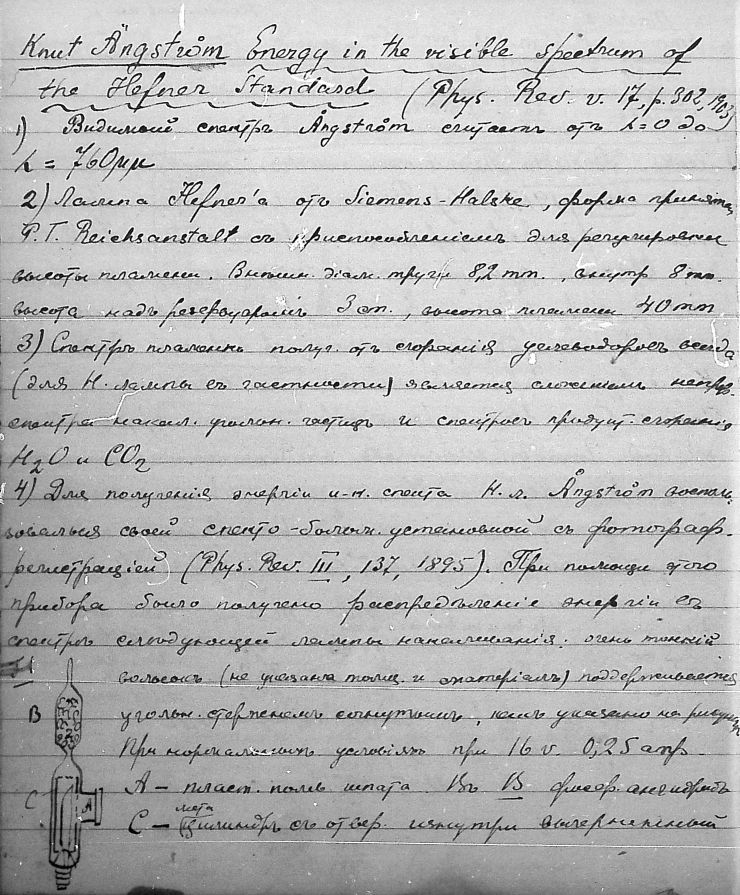 Knut Ångström Energy in the visible spectrum of
the Hefner Standard (Phys. Rev. v. 17, p. 302, 1903)
1) Видимый спектръ Ångström считаетъ отъ λ=0 до
λ = 760μμ
2) Лампа Hefner'a отъ Siemens-Halske, форма принятая
P.T. Reichsanstalt съ приспособленіемъ для регулировки
высоты пламени. Внѣшн. діам. трубки 8,2 mm., внутр 8 mm.
высота надъ резервуаромъ 3 cm., высота пламени 40 mm
3) Спектръ пламени получ. отъ сгоранія углеводоровъ всегда
(для H. лампы въ частности) является сложеніемъ непрер.
спектра накал. угольн. частицъ и спектровъ продукт. сгоранія
H2O и CO2
4) Для полученія энергіи и-н. спекта H. л. Ångström восполь-
зовался своей спекто-болом. установкой съ фотограф.
регистраціей (Phys. Rev. III, 137, 1895). При помощи этого
прибора было получено распредѣленіе энергіи въ
спектрѣ слѣдующей лампы накаливанія: очень тонкій
волосокъ (не указана толщ. и матеріалъ) поддерживается
B угольн. стержнемъ согнутымъ, какъ указано на рисункѣ
При нормальныхъ условіяхъ при 16 v. 0,25 amp.
C A A — пласт. полев шпата Въ B фосф. ангидридъ
мета
C — цилиндръ съ отвер. изнутри вычерненный